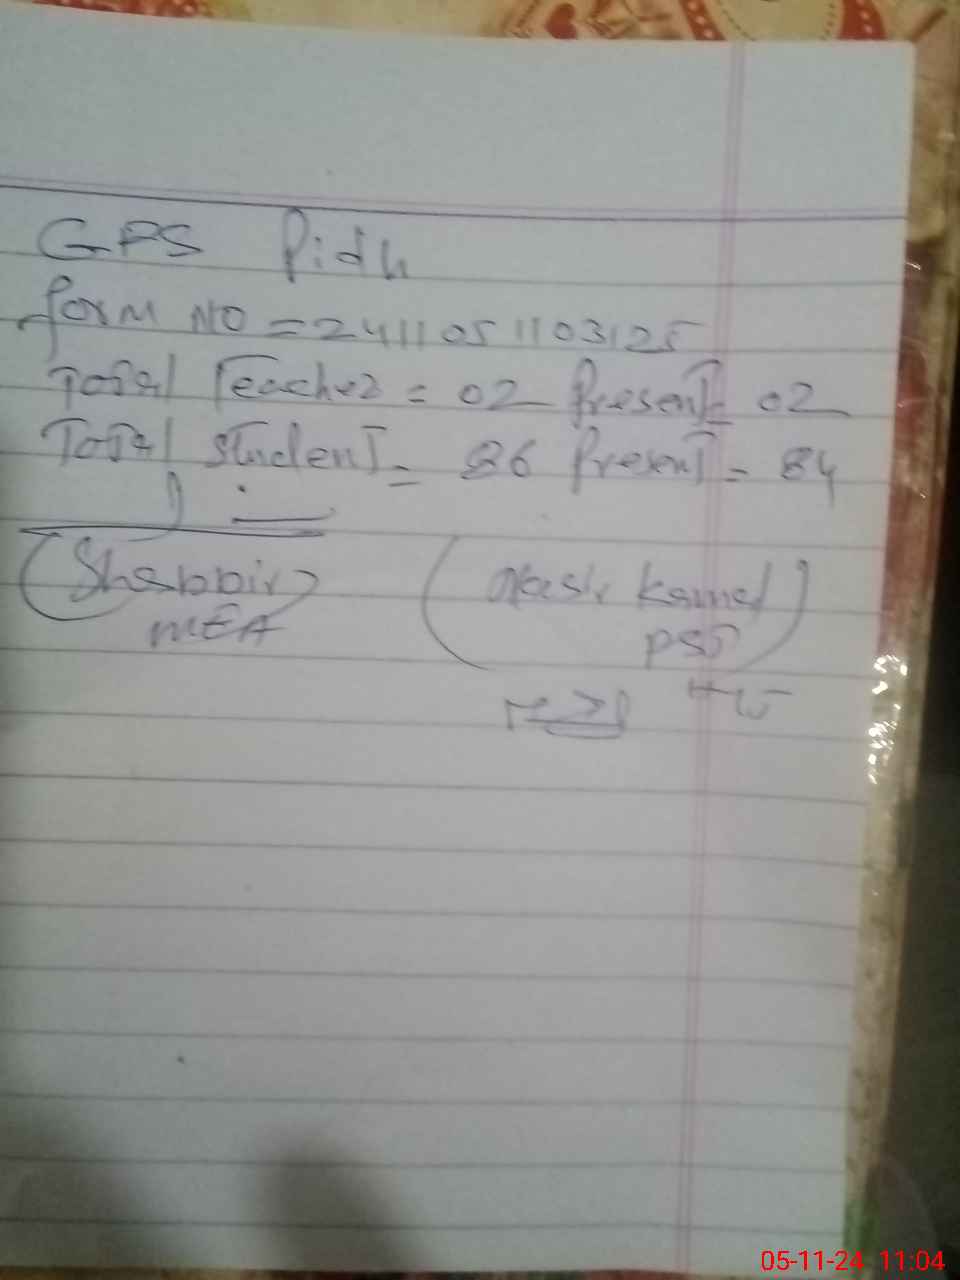 GPS Pidh
form NO = 2411051103125
Total Teacher = 02 Present = 02
Total student = 86 Present = 84
(Shabbir)
MEA
Kamal
PST
05-11-24 11:04